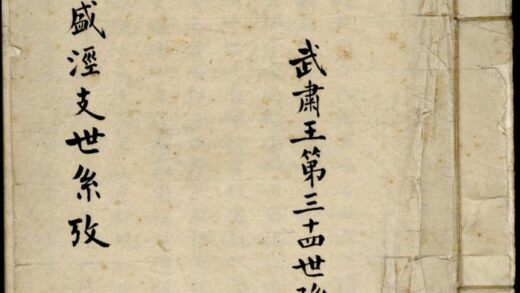 武肅王第三十四世
盛涇支世系攷